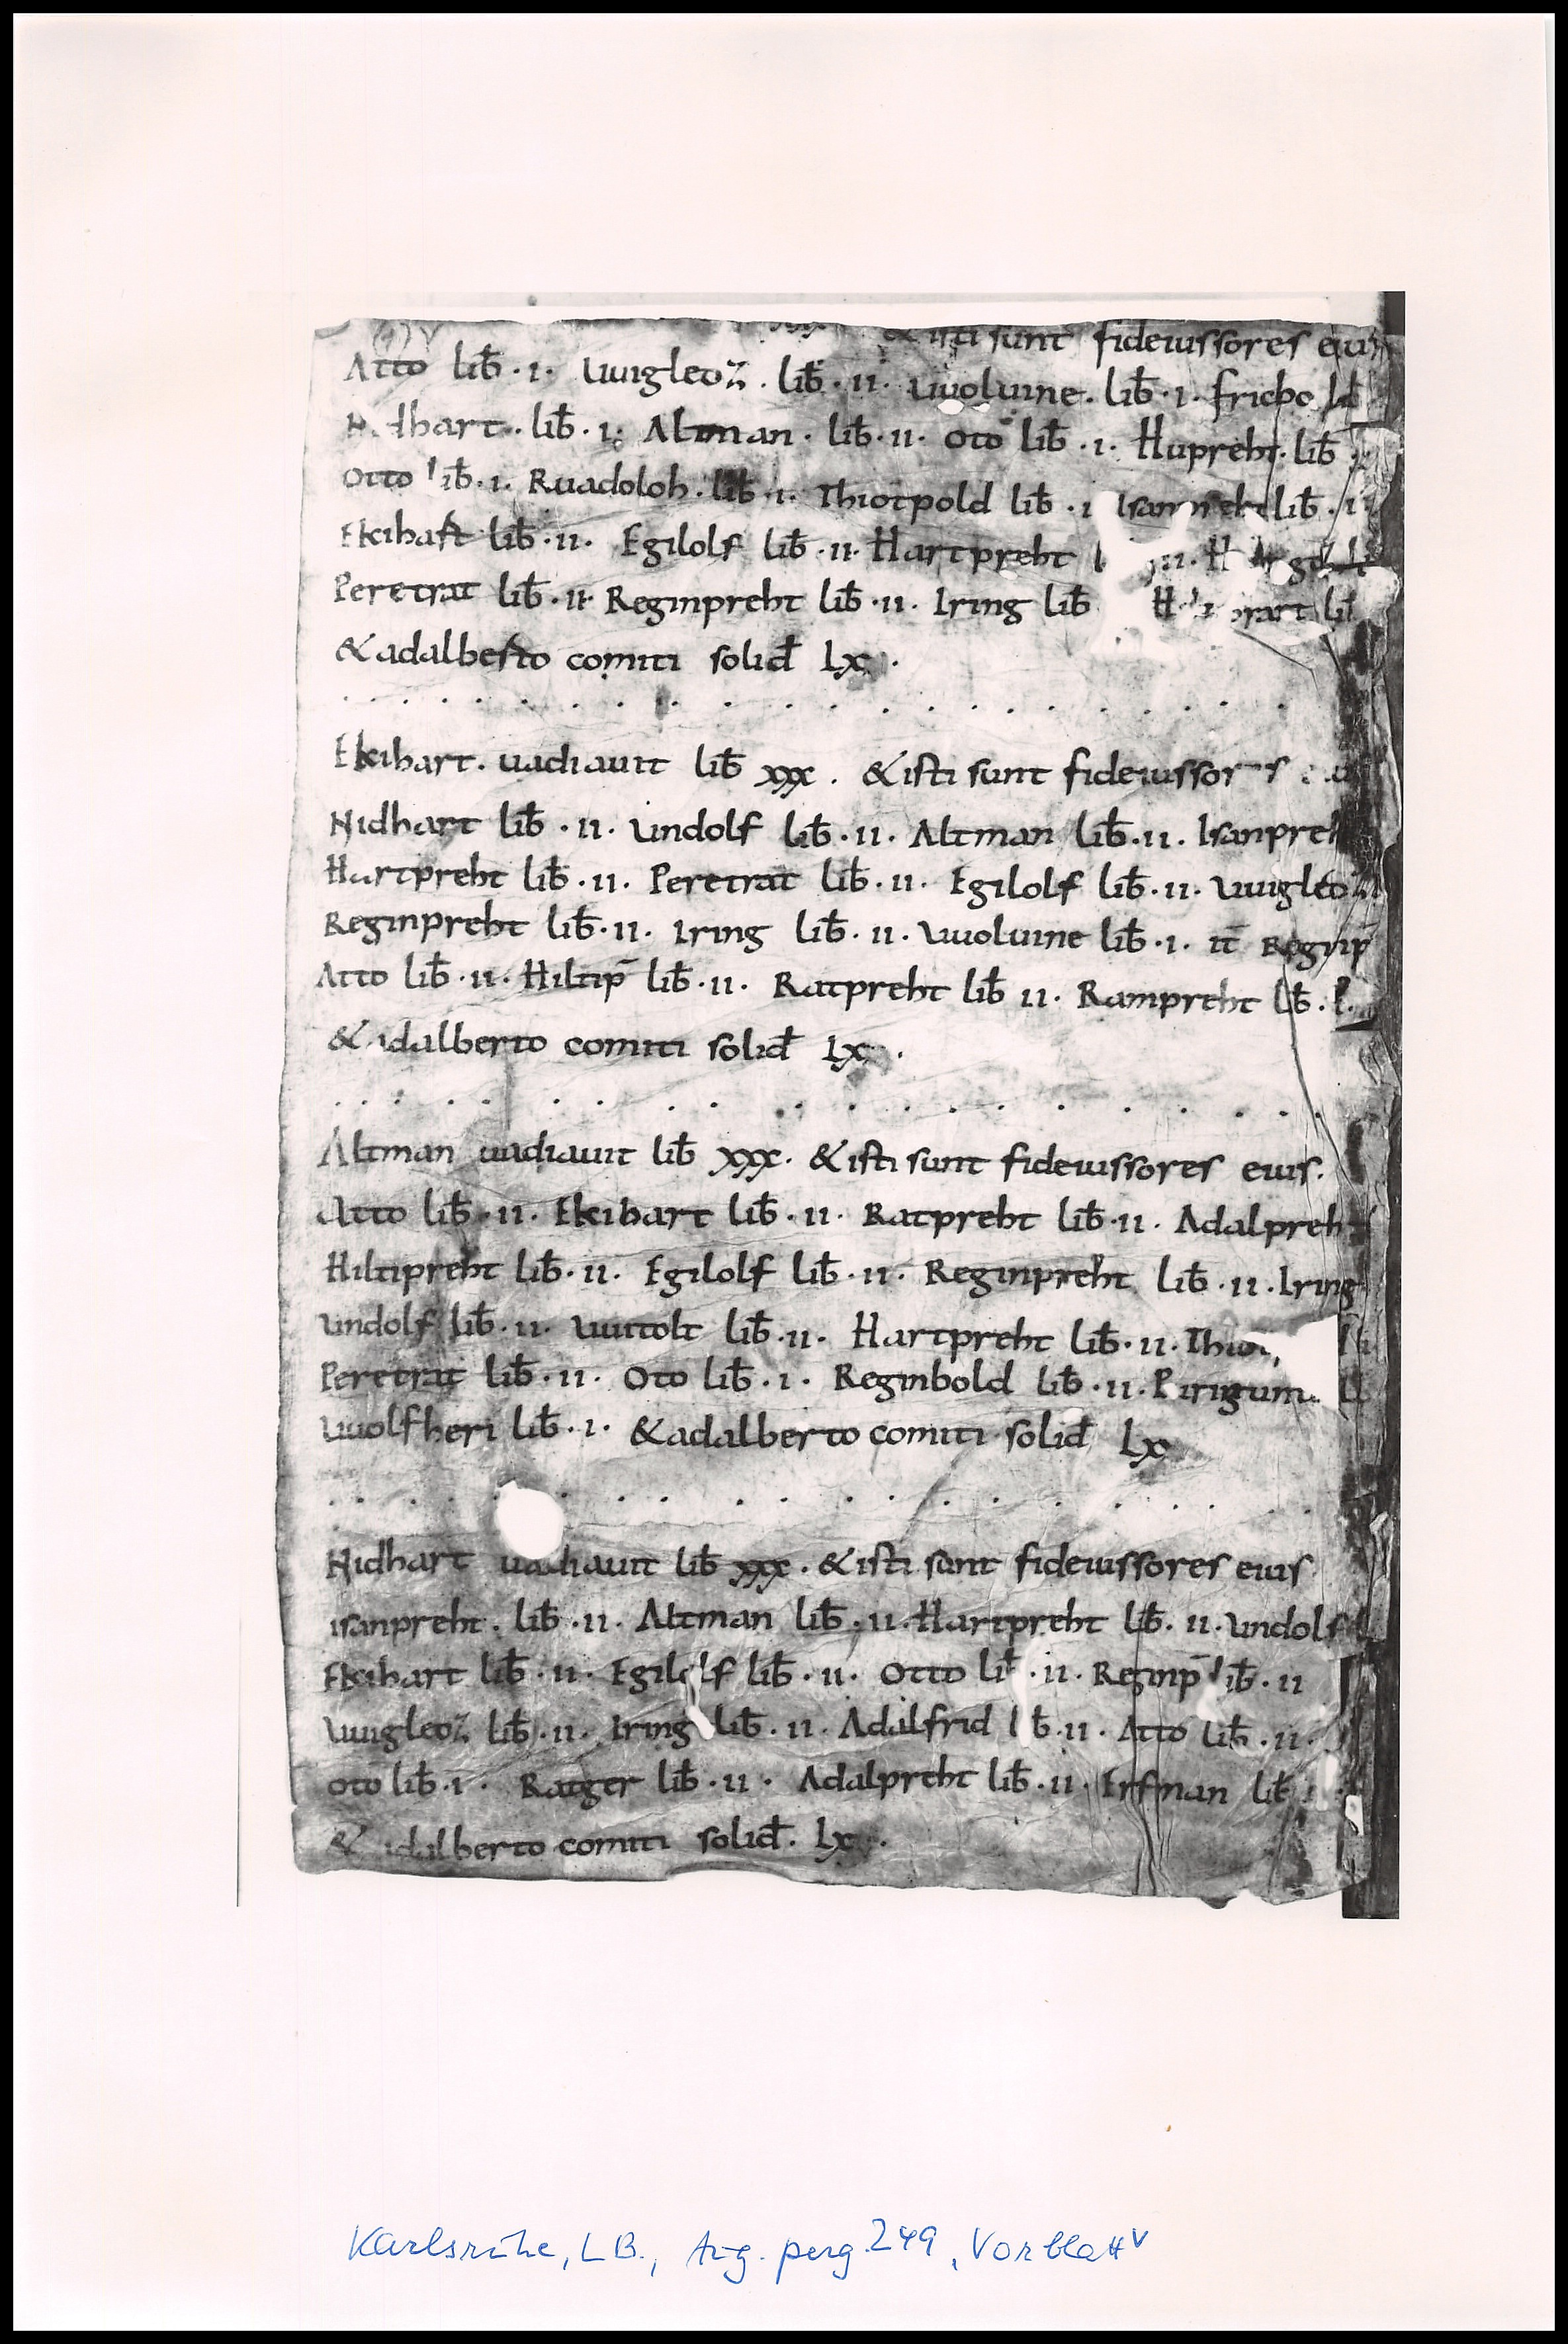 & isti sunt fideiussores eius
Atto lib̄ · i · Uuigleoz · lib̄ · ii · Uuoluine · lib̄ · i · fricbo
lib̄ · i · Altman · lib̄ · ii · Oto lib̄ · i · Hupreht · lib̄
Otto lib̄ · i · Ruadoloh · lib̄ · i · Thiotpold lib̄ · i lib̄ · i
Ekihart lib̄ · ii · Egilolf lib̄ · ii · Hartpreht
Peretrat lib̄ · ii · Reginpreht lib̄ · ii · Iring lib̄
& adalberto comiti solid̄ Lx ·
Ekihart · uadiauit lib̄ xxx · & isti sunt fideiussores
Nidhart lib̄ · ii · Undolf lib̄ · ii · Altman lib̄ · ii · Isanpreh
Hartpreht lib̄ · ii · Peretrat lib̄ · ii · Egilolf lib̄ · ii · Uuigleoz
Reginpreht lib̄ · ii · Iring lib̄ · ii · Uuoluine lib̄ · i · it̄ Reginp̄
Atto lib̄ · ii · Hiltip̄ lib̄ · ii · Ratpreht lib̄ ii · Rampreht lib̄ ·
& adalberto comiti solid̄ Lx ·
Altman uadiauit lib̄ xxx · & isti sunt fideiussores eius ·
Atto lib̄ · ii · Ekihart lib̄ · ii · Ratpreht lib̄ · ii · Adalpreht
Hiltipreht lib̄ · ii · Egilolf lib̄ · ii · Reginpreht lib̄ · ii · Iring
Undolf lib̄ · ii · Uuitolt lib̄ · ii · Hartpreht lib̄ · ii ·
Peretrat lib̄ · ii · Oto lib̄ · i · Reginbold lib̄ · ii ·
Uuolfheri lib̄ · i · & adalberto comiti solid̄ Lx
Nidhart uadiauit lib̄ xxx · & isti sunt fideiussores eius
isanpreht · lib̄ · ii · Altman lib̄ · ii · Hartpreht lib̄ · ii · Undolf
Ekihart lib̄ · ii · Egilolf lib̄ · ii · Otto lib̄ · ii · Reginp̄ lib̄ · ii
Uuigleoz lib̄ · ii · Iring lib̄ · ii · Adalfrid lib̄ · ii · Atto lib̄ · ii ·
Oto lib̄ · i · Ratger lib̄ · ii · Adalpreht lib̄ · ii · Erfman lib̄
& adalberto comiti solid̄ · Lx ·
Karlsruhe, LB., Aug. perg. 249, Vorblatt v